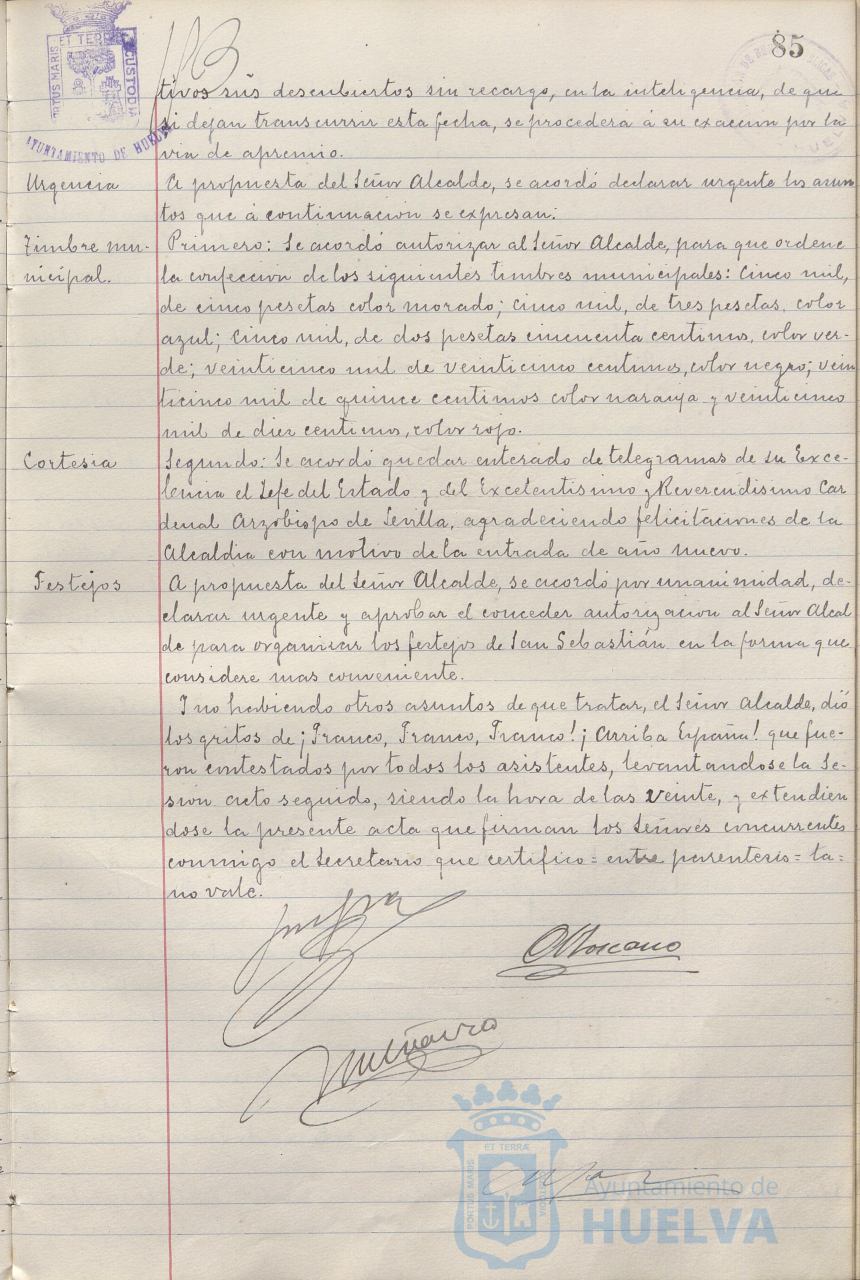 85
ET TERRÆ
CUSTODIA
AYUNTAMIENTO DE HUELVA
tivos sus descubiertos sin recargo, en la inteligencia, de que
si dejan transcurrir esta fecha, se procederá á su exaccion por la
via de apremio.
Urgencia
A propuesta del Señor Alcalde, se acordó declarar urgente los asun
tos que á continuacion se expresan:
Timbre mu-
nicipal.
Primero: Se acordó autorizar al Señor Alcalde, para que ordene
la confeccion de los siguientes timbres municipales: Cinco mil,
de cinco pesetas color morado; cinco mil, de tres pesetas, color
azul; cinco mil, de dos pesetas cincuenta centimos, color ver-
de; veinticinco mil de veinticinco centimos, color negro; vein
ticinco mil de quince centimos color naranja y veinticinco
mil de diez centimos, color rojo.
Cortesia
Segundo: Se acordó quedar enterado de telegramas de su Exce-
lencia el Jefe del Estado y del Excelentisimo y Reverendisimo Car
denal Arzobispo de Sevilla, agradeciendo felicitaciones de la
Alcaldia con motivo de la entrada de año nuevo.
Festejos
A propuesta del Señor Alcalde, se acordó por unanimidad, de-
clarar urgente y aprobar el conceder autorizacion al Señor Alcal
de para organizar los festejos de San Sebastián en la forma que
considere mas conveniente.
I no habiendo otros asuntos de que tratar, el Señor Alcalde, dió
los gritos de ¡Franco, Franco, Franco! ¡Arriba España! que fue-
ron contestados por todos los asistentes, levantandose la Se-
sion acto seguido, siendo la hora de las veinte, y extendien
dose la presente acta que firman los Señores concurrentes
conmigo el Secretario que certifico = entre parentesis = la =
no vale.
Toscano
ET TERRÆ
PORTUS MARIS
CUSTODIA
Ayuntamiento de
HUELVA